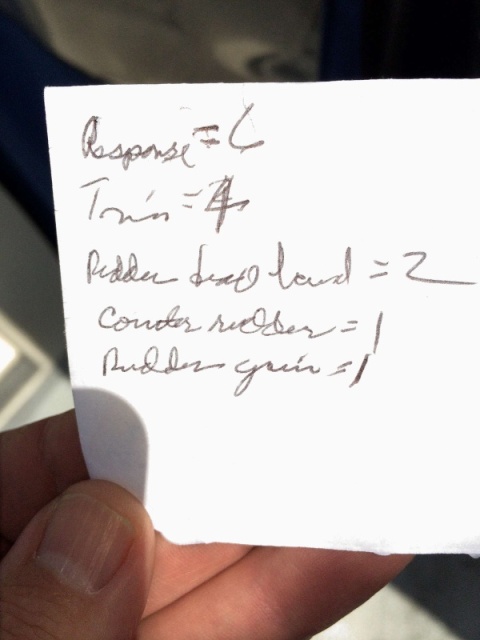 Response =
Trim = 4
Rudder = 2
Counter rudder = 1
Rudder gain = 1